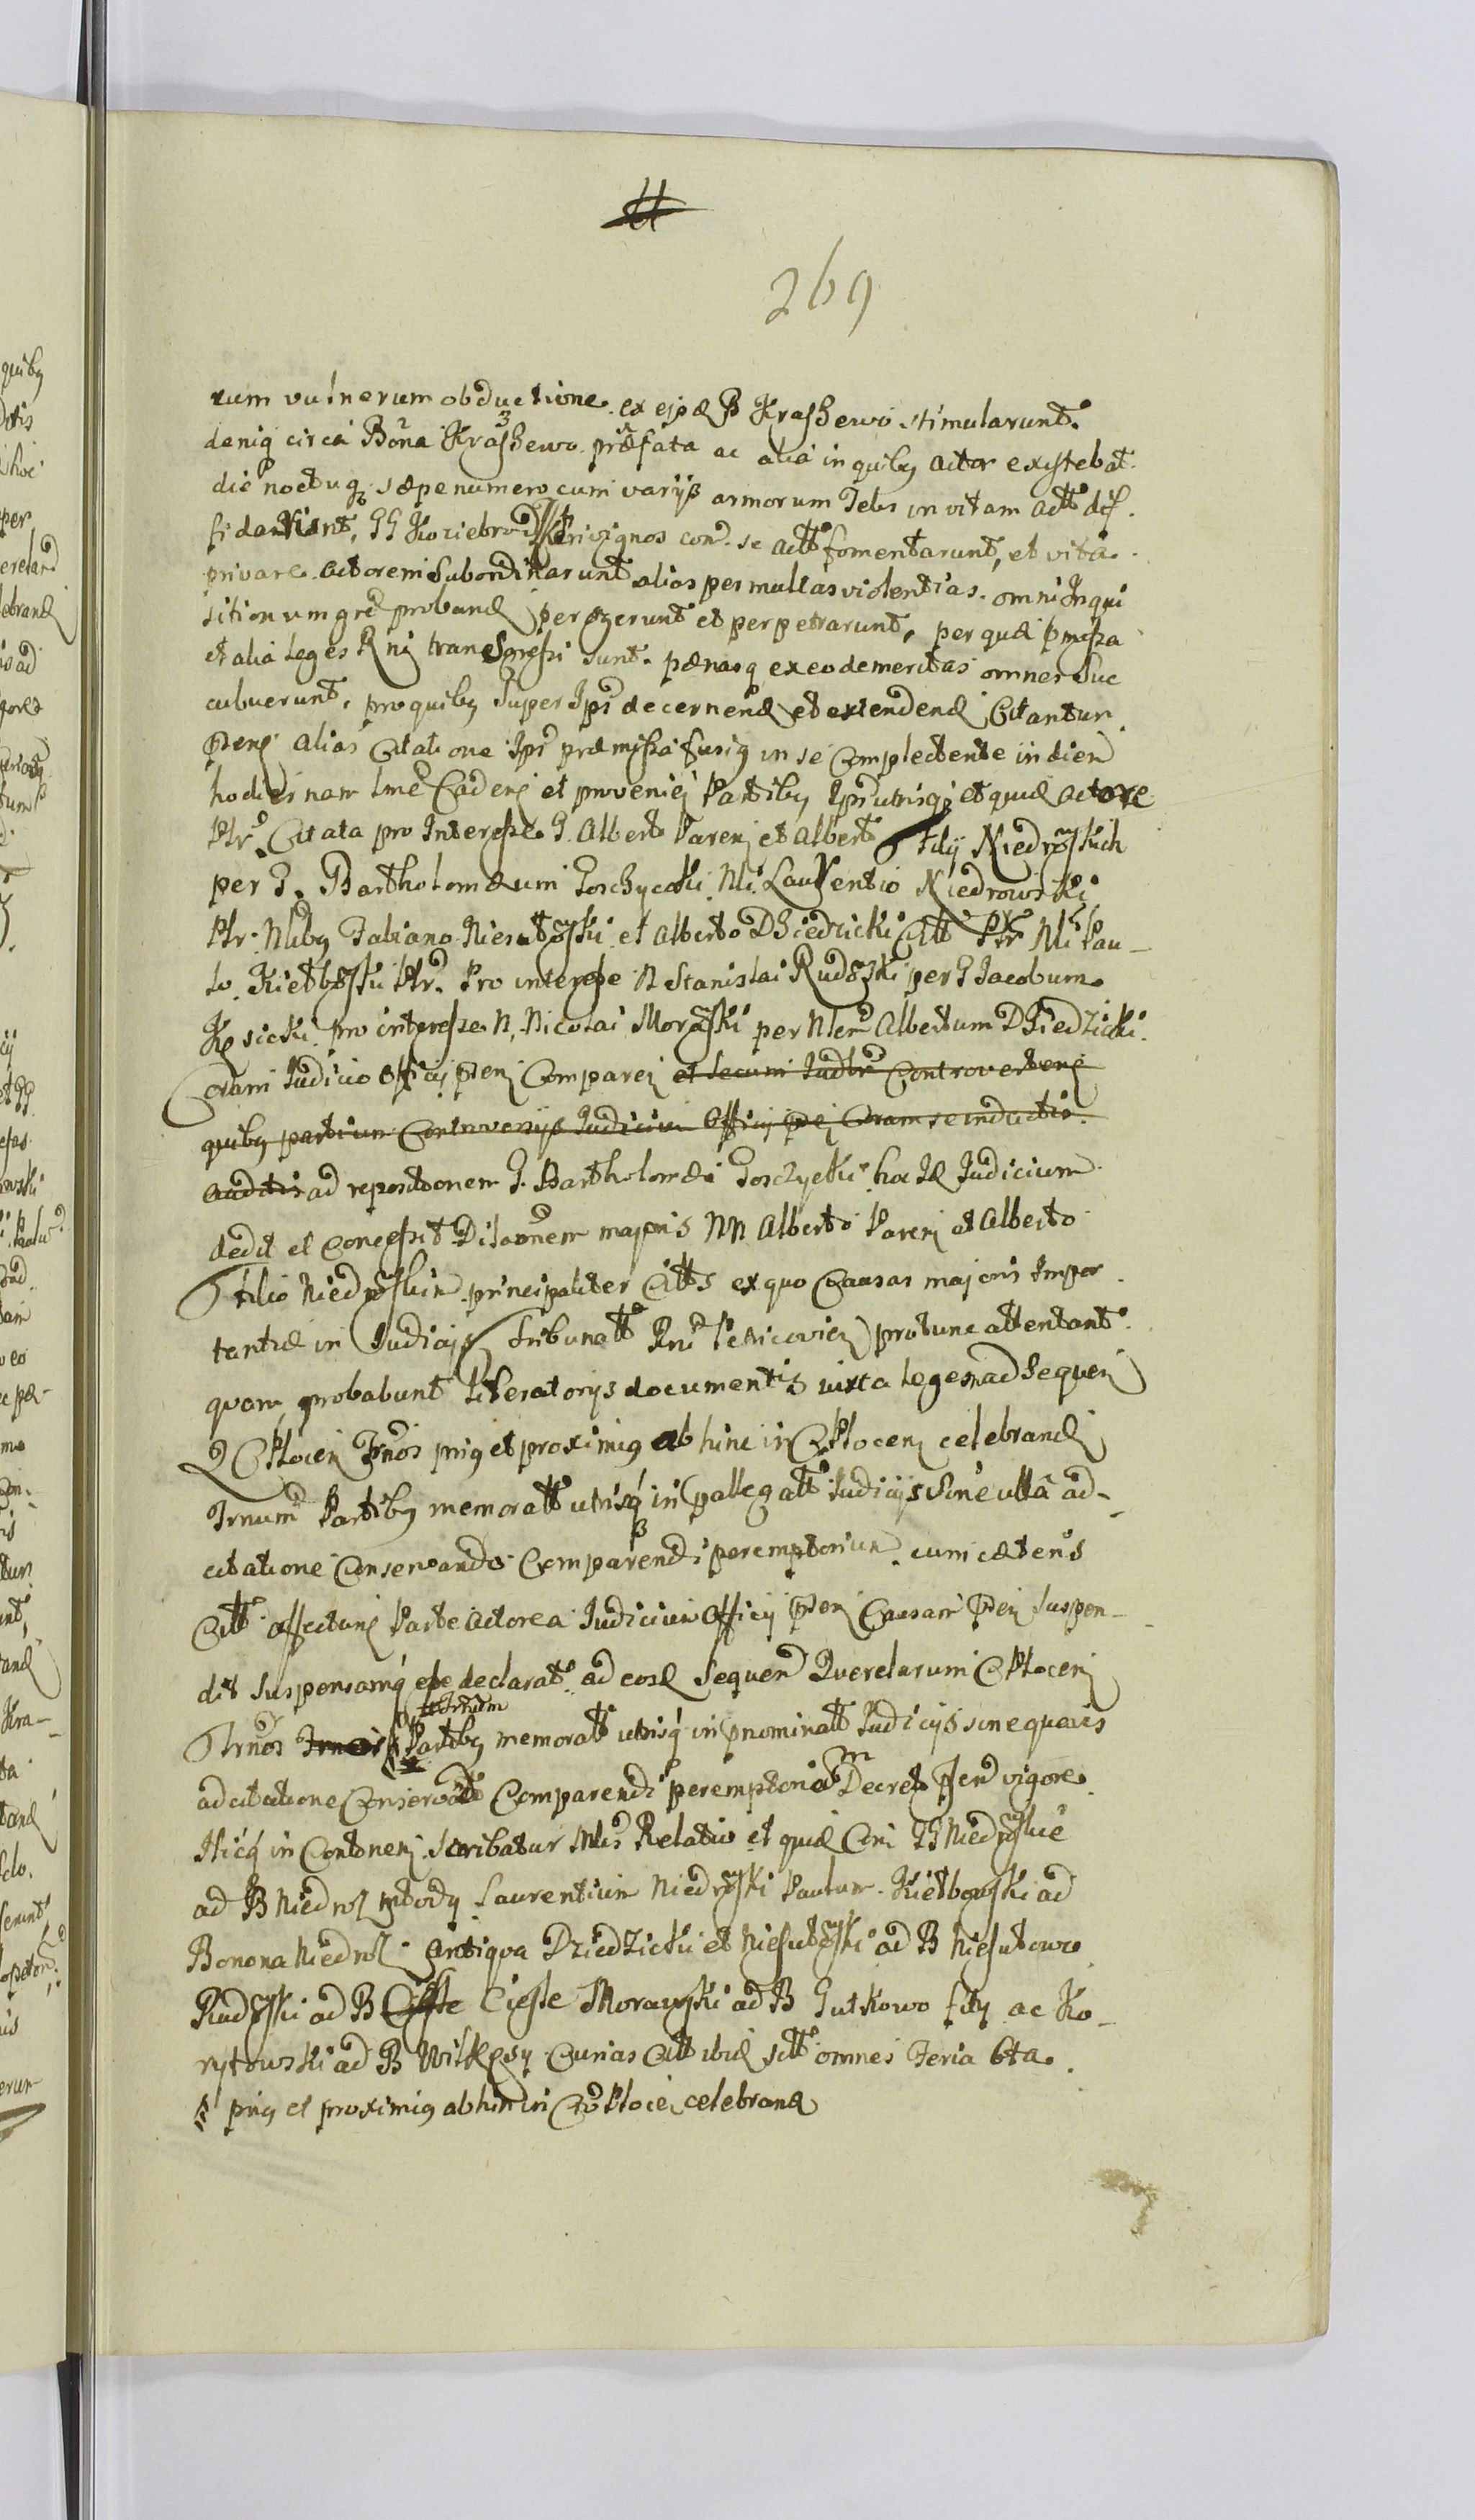 269
rum vulnerum obductione ex ejsd B Kraszewo stimularunt.
deniq circa Bona Kraszewo præfata ac alia in quibq actor existebat
die noctuqz sæpe numero cum varijs armorum Telis in vitam actt dif
fidarunt, GG Koziebrodz Privignos con se actt fomentarunt, et vita
privare actorem subordinarunt alias per multas violentias omni Inqui
sitionum gre proband peregerunt et perpetrarunt, per quæ pmissa
et alia Leges Rni transgressi sunt pænasq ex eo demeritas omnes suc
cubuerunt, pro quibq super Ips decernend et extendend Citantur
pten alias Citatione Ips præmissa fusiq in se Complectente in diem
hodiernam Lme Caden et provenien Partibq Ips utrisq et quæ actore
Ptr Citata pro Interesse G. Albert Paren et Albert Filij Niedroskich
per G. Bartholomæum Goschycki Nli Laurentio Niedrowski
Ptr. Nlibq Fabiano Niesutoski et Alberto Dziedzicki Citt Ptr Nli Pau-
lo Kietboski Ptr. Pro interesse N Stanislai Rudoski per G Jacobum
Kesicki pro interesse N. Nicolai Moraski per Nlem Albertum Dziedzicki
Coram Judicio Officij pten Comparen et secum Judlr Controverten
quibq partium Controversijs Judicium Officij pten Coram se inductis
auditis ad repositionem G. Bartholomæi Goszlycki hoc Id Judicium
dedit et Concessit Dilaonem majoris NN Alberto Paren et Alberto
Filio Niedroskim principaliter Citts ex quo Causas majoris Impor
tantiæ in Judicijs Tribunatt Rni Petricovien protunc attentant
quam probabunt Literatorijs documentis juxta Leges ad Sequen
Q CPtocen Trnos priq et proximiq ab hinc in CPtocen celebrand
Trnum Partibq memoratt utrisq in pallegatt Judicijs Sine ulla ad-
citatione Conservando Comparendi peremptorium cum cæteris
Citt affectan Parte actorea Judicium Officij pten Causam pten suspen-
dit suspensamq esse declarat ad eosd Sequen Querelarum CPtocen
Trnos Trnos Trnum Partibq memoratt utrisq in pnominatt Judicijs sine quavis
adcitatione Conservat Comparendi peremptoriam Decret psen vigore
Hicq in Contonen scribatur Mlis Relatio et quæ Cni GG Niedroskie
ad B Niedroz mtody Laurentium Niedroski Paulum Kietbowski ad
Bonona Niedroz antiqua Dziedzicki et Niesutoski ad B Niesutowo
Rudoski ad B Cieste Morawski ad B Gutkowo fity ac Ko-
rytowski ad B Wilkesy Curias Citt ibid sitt omnes Feria 6ta
priq et proximiq ab hinc in CPtocen celebrand